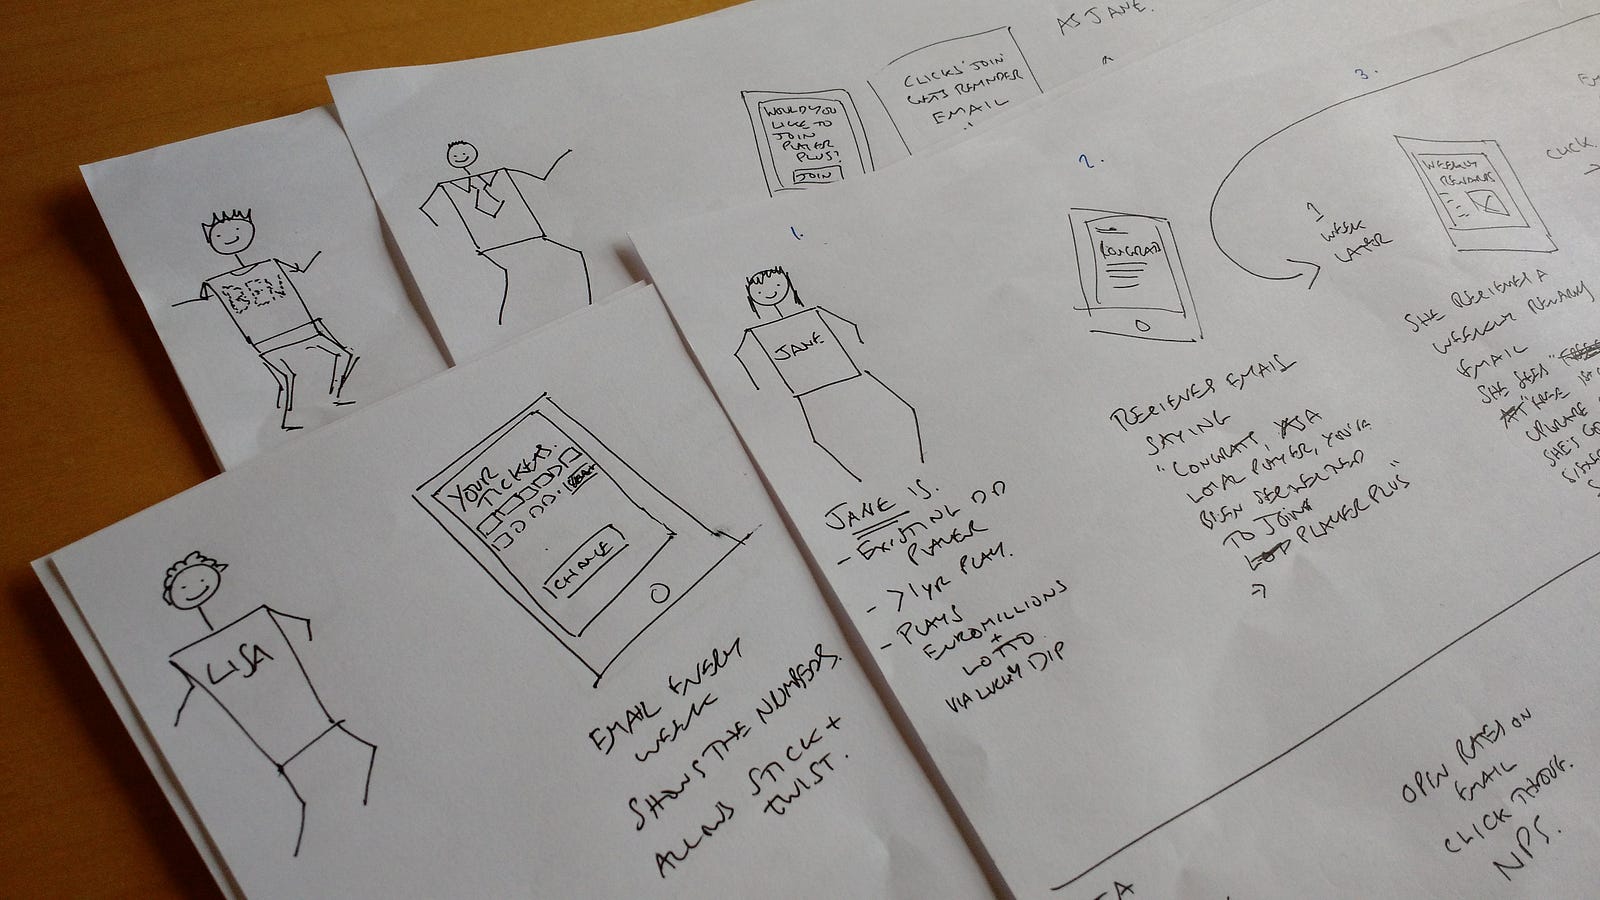 AS JANE.
WOULD YOU
LIKE TO
JOIN
PLAYER
PLUS?
JOIN
CLICKS 'JOIN'
GETS REMINDER
EMAIL
BEN
LISA
YOUR
TICKETS.
CHANGE
EMAIL EVERY
WEEK
SHOWS THE NUMBERS.
ALLOWS STICK +
TWIST.
1.
JANE
JANE IS.
- EXISTING DD
PLAYER
- >1YR PLAY.
- PLAYS
EUROMILLIONS
+
LOTTO
VIA LUCKY DIP
2.
CONGRATS
RECIEVES EMAIL
SAYING
"CONGRATS, AS A
LOYAL PLAYER, YOU'VE
BEEN SELECTED
TO JOIN
PLAYER PLUS"
3.
1
WEEK
LATER
WEEKLY
REWARDS
CLICK.
SHE RECIEVES A
WEEKLY REWARDS
EMAIL
SHE SEES
OPEN RATES ON
EMAIL
CLICK THROUGH.
NPS.